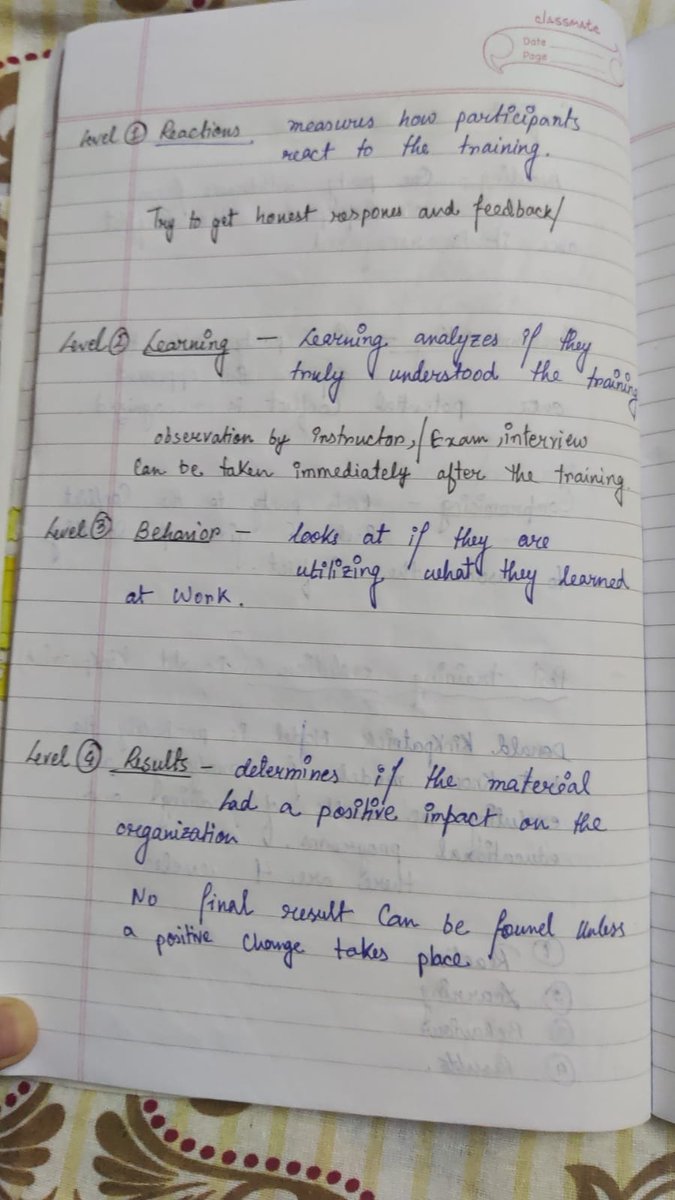 classmate
Date
Page
Level ① Reactions. measures how participants
react to the training.
Try to get honest respones and feedback/
Level ② Learning – Learning analyzes if they
truly understood the training
observation by instructor,/Exam, interview
Can be taken immediately after the training.
Level ③ Behavior – looks at if they are
utilizing what they learned
at Work.
Level ④ Results – determines if the material
had a positive impact on the
organization
No final result can be found unless
a positive change takes place.